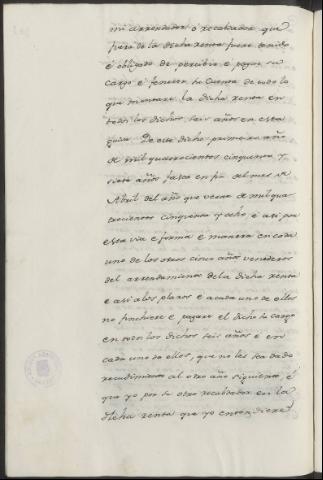 mi arrendador ó recabdador que
fuere de la dicha renta fuere tenido
é obligado de percibir é pagar su
cargo é fenecer su Cuenta de todo lo
que montare la dicha renta en
todos los dichos seis años en esta
guisa. De este dicho primero año
de mil quatrocientos cinquenta y
siete años fasta en fin del mes de
Abril del año que verna de mil qua-
trocientos cinquenta y ocho é asi por
esta via e forma e manera en cada
uno de los otros cinco años venideros
del arrendamiento de la dicha renta
e asi a los plazos e a cada uno de ellos
no finchiere e pagare el dicho su cargo
en todos los dichos seis años é en
cada uno de ellos, que no les sea dado
recudimiento al otro año siguiente, é
que yo por tu otro recabdador en la
dicha renta que yo entendiere